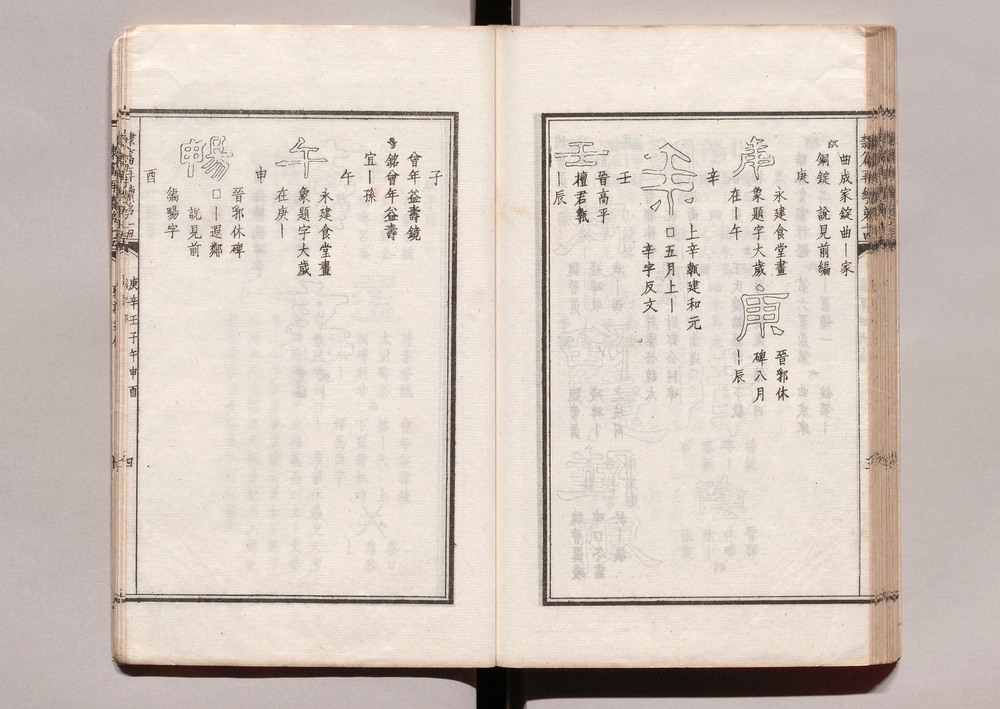 曲成家錠曲丨家
銅錠 說見前編
庚
庚 永建食堂畫
象題字大歲
在丨午
庚 晉郛休
碑八月
丨辰
辛
辛 上辛甎建和元
□五月上丨
辛字反文
壬
壬 晉高平
檀君甎
丨辰
子
曾年益壽鏡
銘曾年益壽
宜丨孫
午
午 永建食堂畫
象題字大歲
在庚丨
申
暢 晉郛休碑
□丨遐鄰
說見前
編暘字
酉
庚辛壬子午申酉
四